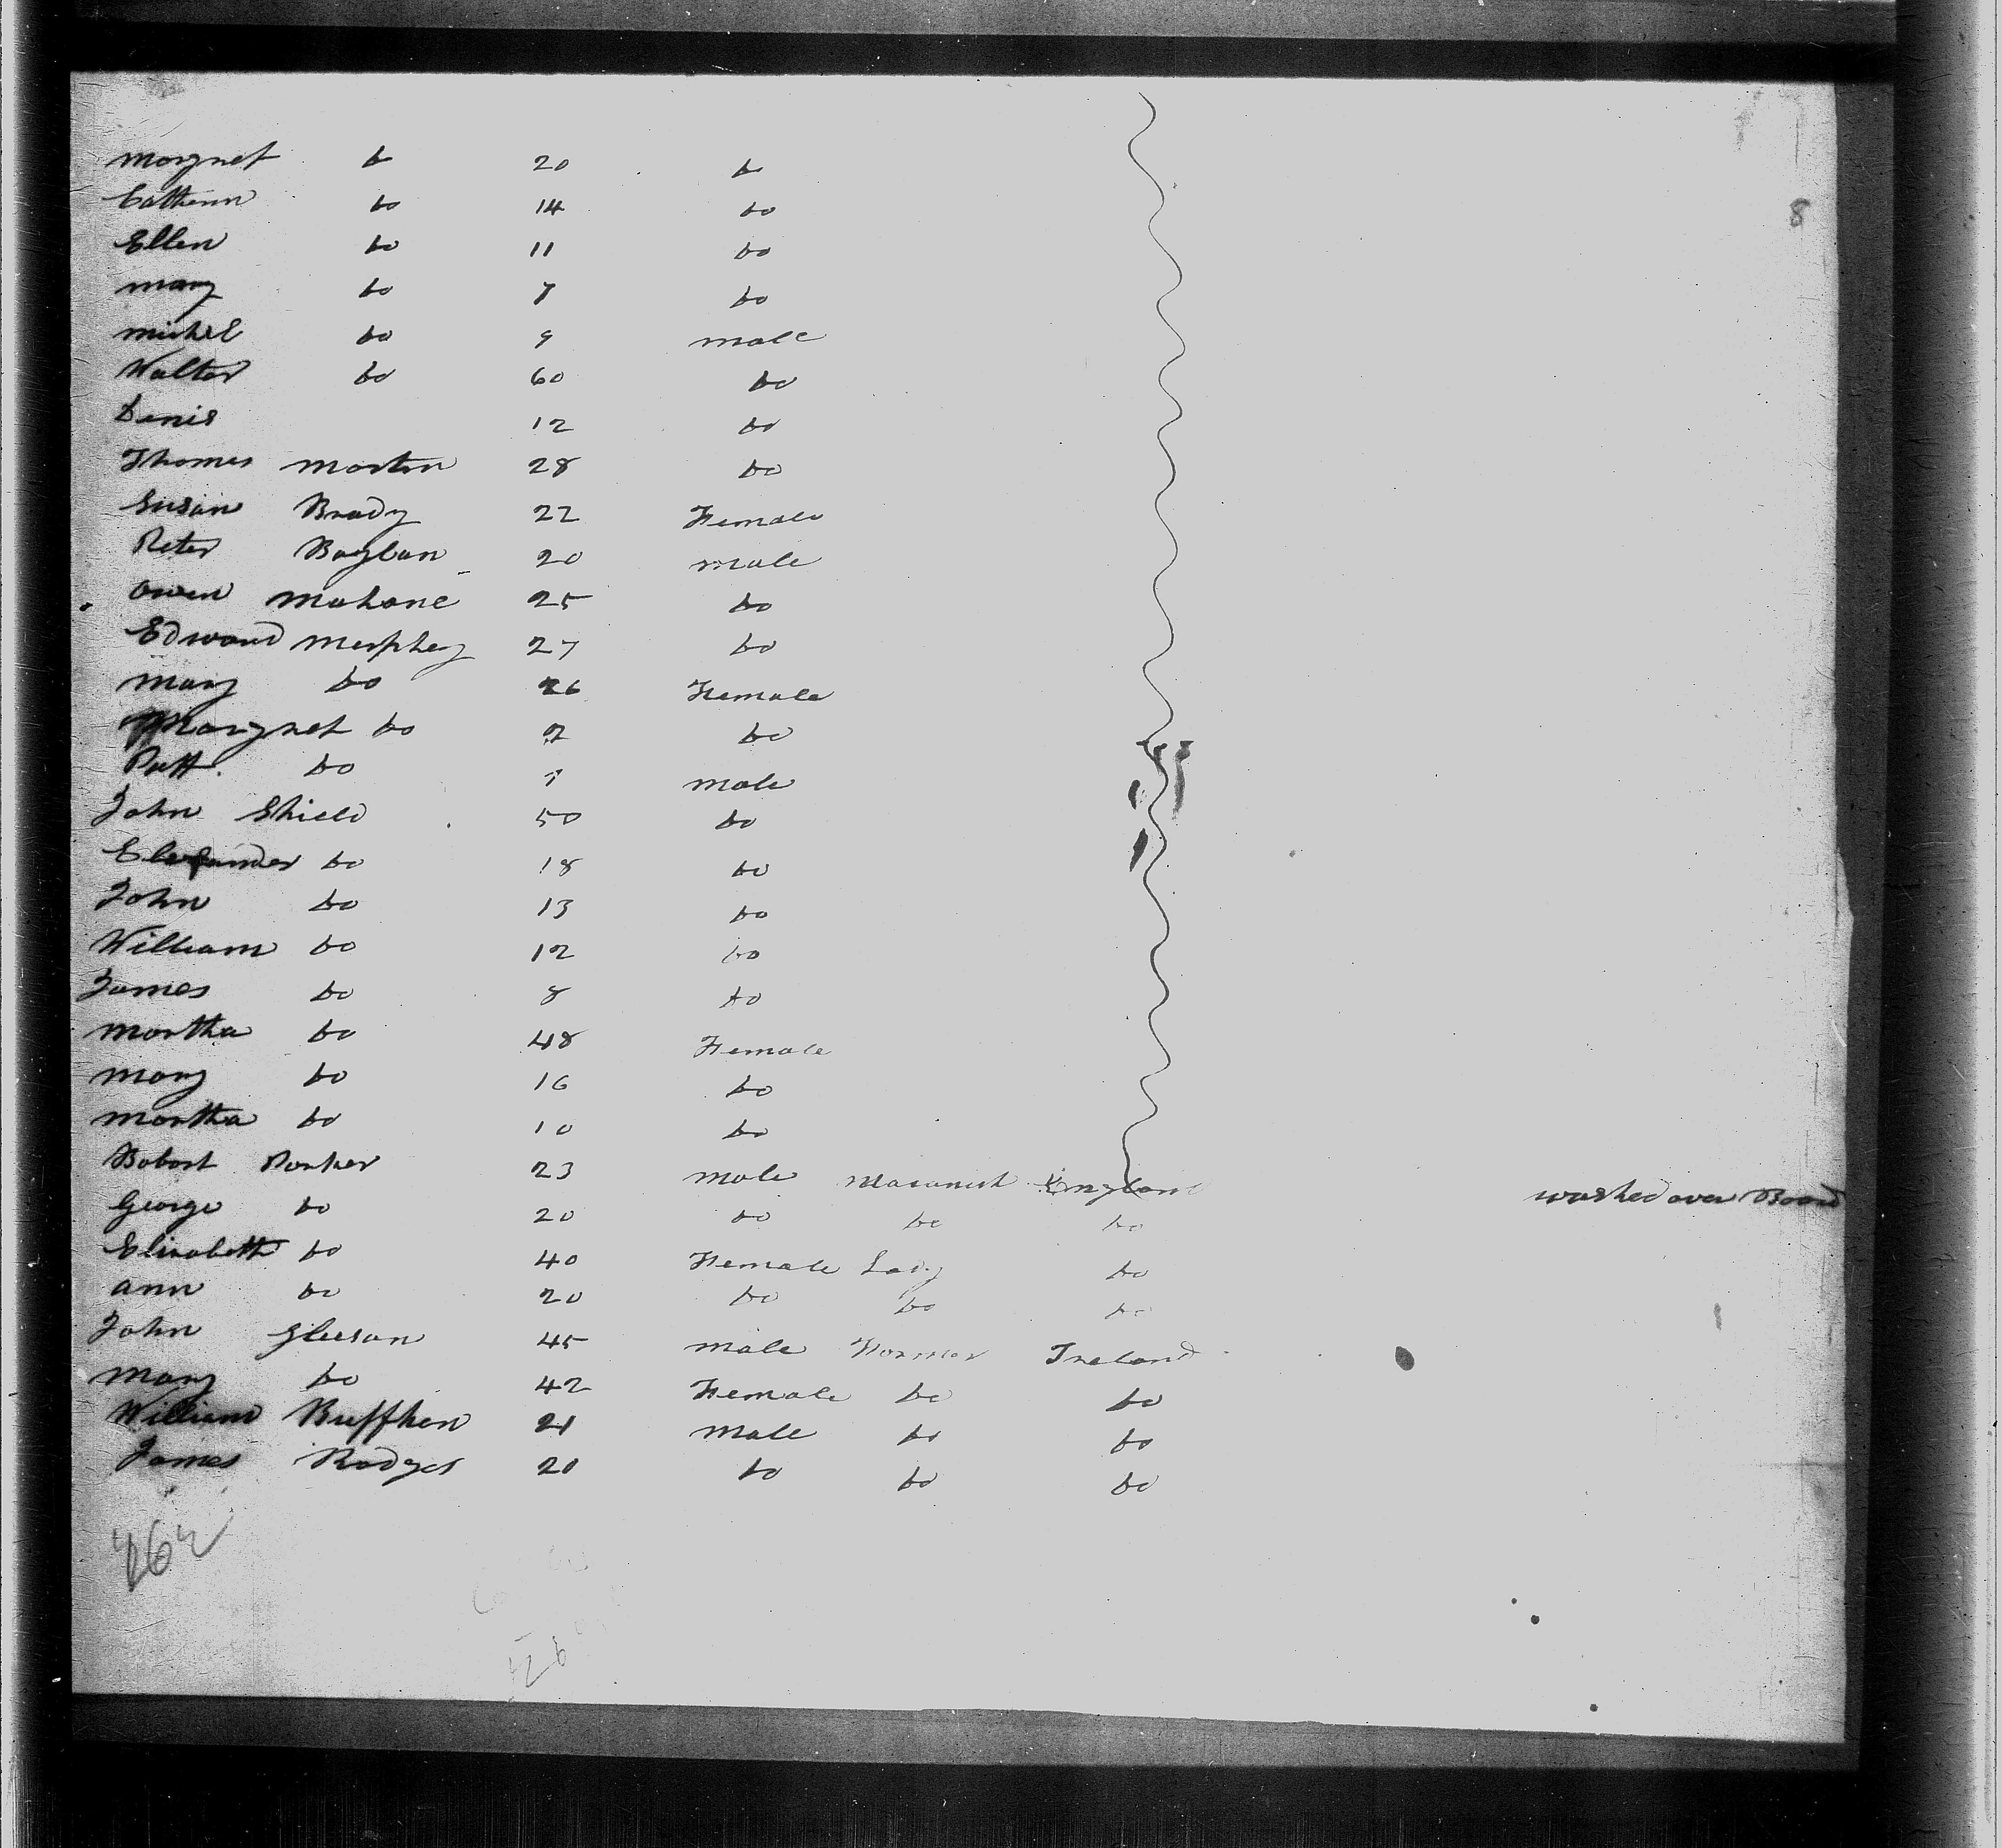 8
Margnet do 20 do
Cathenn do 14 do
Ellen do 11 do
Mary do 7 do
Michel do 9 male
Walter do 60 do
Denis 12 do
Thomas Martin 28 do
Susan Brady 22 Female
Peter Boylan 20 male
Owen Mahone 25 do
Edward Murphey 27 do
Mary do 26 Female
Margnet do 2 do
Patt. do 1 male
John Shield 50 do
do 18 do
John do 13 do
William do 12 do
James do 8 do
Martha do 48 Female
Mary do 16 do
Martha do 10 do
Robert Parker 23 male England washed over Board
George do 20 do do do
Elizabeth do 40 Female Lady do
Ann do 20 do do do
John Gleeson 45 male Farmer Ireland
Mary do 42 Female do do
William 21 male do do
James Rodges 20 do do do